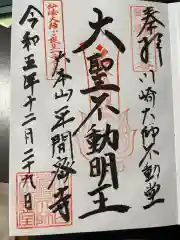 奉拝
川崎大師不動堂
大聖不動明王
大本山平間寺
令和五年十二月二十九日